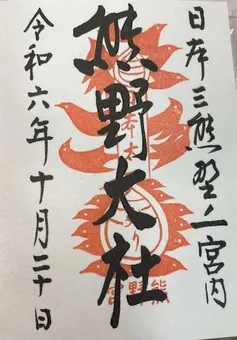 日本三熊埜ノ一宮内
熊野大社
熊野宮
令和六年十月二十日